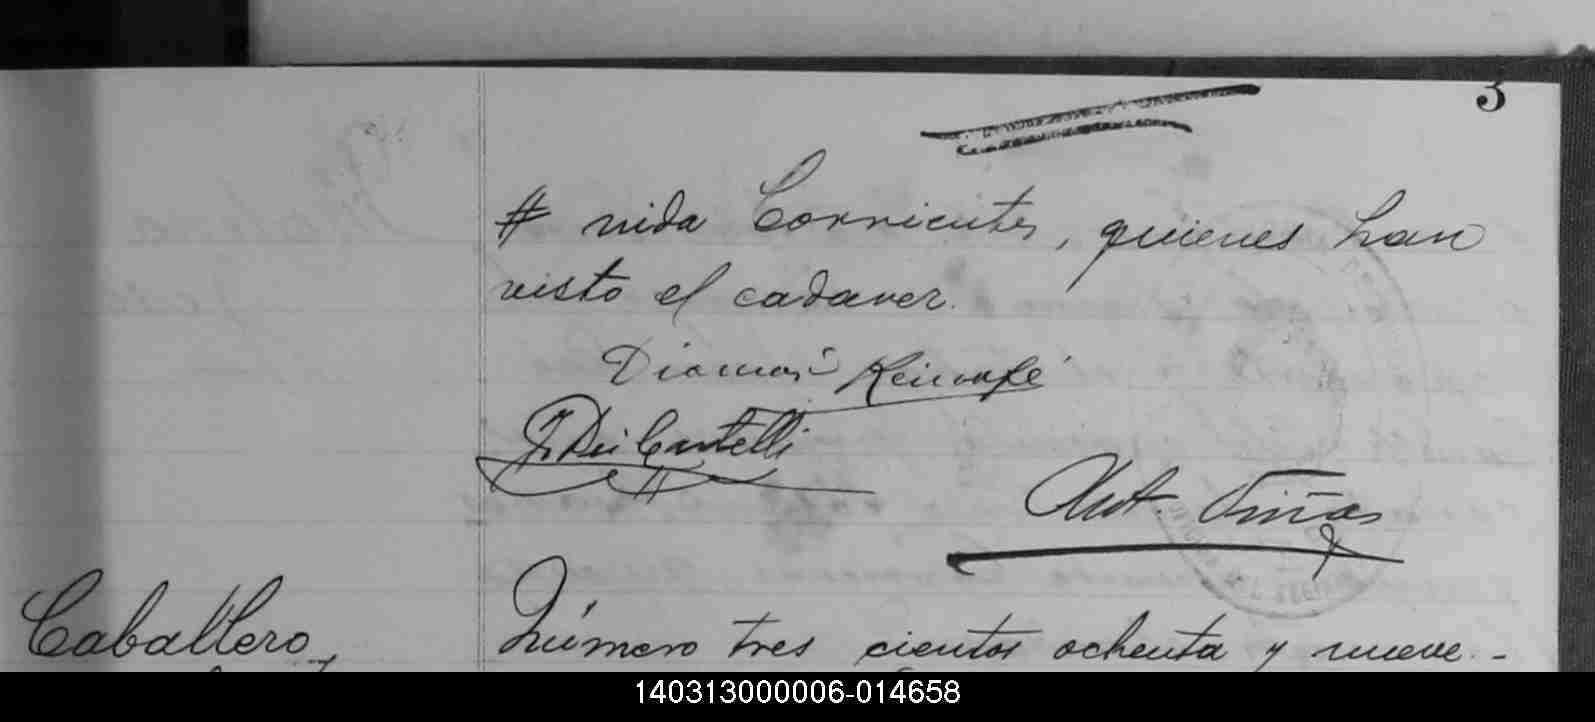 3
# nida Corrientes, quienes han
visto el cadaver.
J. Dei Cantelli
Ant. Viñas
Caballero,
Número tres cientos ochenta y nueve.-
140313000006-014658